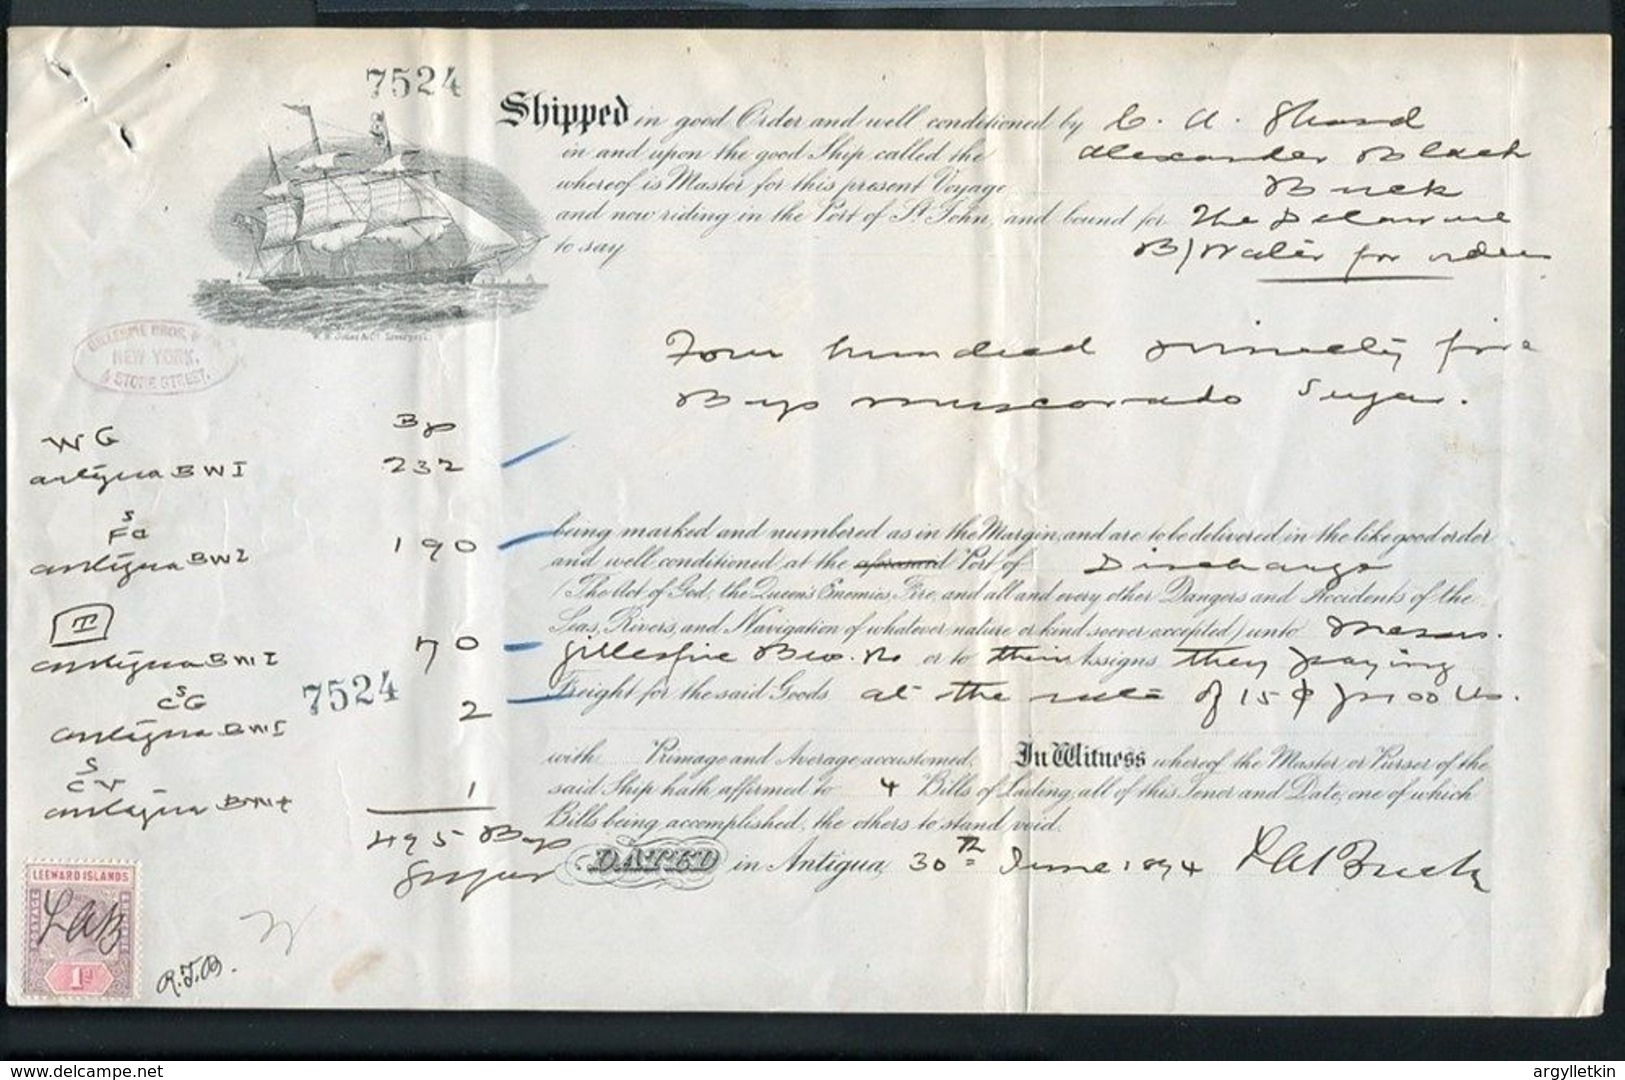 7524
Shipped in good Order and well conditioned by C. A. Shand
in and upon the good Ship called the Alexander Black
whereof is Master for this present Voyage Buck
and now riding in the Port of St. John, and bound for The Delaware
to say B/Water for orders
GILLESPIE BROS. &
NEW YORK.
4 STONE STREET.
Four hundred ninety five
Bags muscovado Sugar.
Bgs
WG
antigua BWI 232
S
FC
antigua BWI 190
being marked and numbered as in the Margin, and are to be delivered in the like good order
and well conditioned at the aforesaid Port of Discharge
(The Act of God, the Queen's Enemies, Fire, and all and every other Dangers and Accidents of the
Seas, Rivers, and Navigation of whatever nature or kind soever excepted) unto Messrs.
Gillespie Bros. Co or to their Assigns they paying
Freight for the said Goods at the rate of 15 ¢ pr 100 lbs.
T
antigua BWI 70
7524
S
CG
antigua BWI 2
S
CV
antigua BWI 1
495 Bags
Sugar
with Primage and Average accustomed. In Witness whereof the Master or Purser of the
said Ship hath affirmed to 4 Bills of Lading, all of this Tenor and Date, one of which
Bills being accomplished, the others to stand void.
DATED in Antigua, 30th June 1894 L A Buck
LEEWARD ISLANDS
POSTAGE
LAB
1d
R.J.B.
delcampe.net
argylletkin